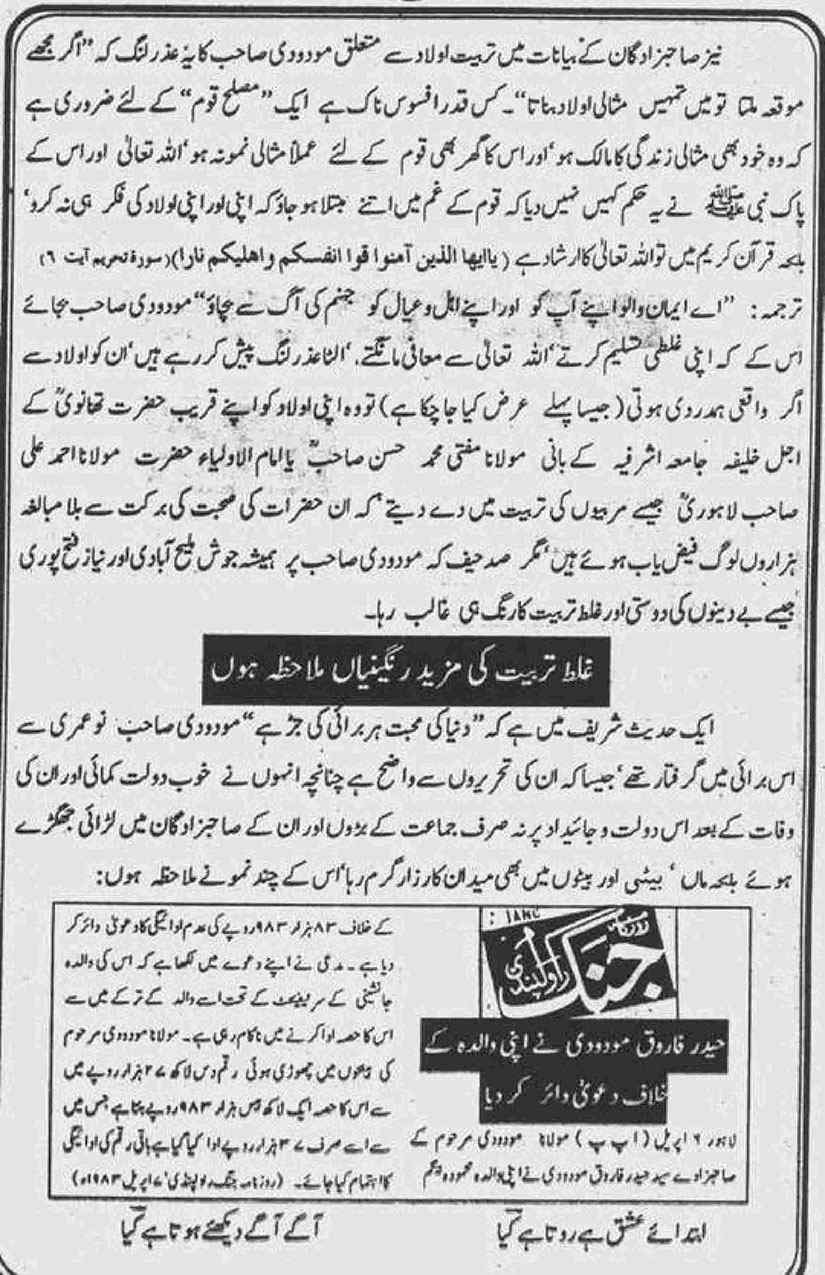 نیز صاحبزادگان کے بیانات میں تربیت اولاد سے متعلق مودودی صاحب کا یہ عذر لنگ کہ ”اگر مجھے
موقعہ ملتا تو میں تمہیں مثالی اولاد بناتا“۔ کس قدر افسوس ناک ہے ایک ”مصلح قوم“ کے لئے ضروری ہے
کہ وہ خود بھی مثالی زندگی کا مالک ہو‘ اور اس کا گھر بھی قوم کے لئے عملاً مثالی نمونہ ہو‘ اللہ تعالیٰ اور اس کے
پاک نبی ﷺ نے یہ حکم کہیں نہیں دیا کہ قوم کے غم میں اتنے مبتلا ہو جاؤ کہ اپنی اور اپنی اولاد کی فکر ہی نہ کرو‘
بلکہ قرآن کریم میں تو اللہ تعالیٰ کا ارشاد ہے (یاایھا الذین آمنوا قوا انفسکم واھلیکم نارا) (سورۃ تحریم آیت ٦)
ترجمہ: ”اے ایمان والو اپنے آپ کو اور اپنے اہل و عیال کو جہنم کی آگ سے بچاؤ“ مودودی صاحب بجائے
اس کے کہ اپنی غلطی تسلیم کرتے‘ اللہ تعالیٰ سے معافی مانگتے‘ الٹا عذر لنگ پیش کر رہے ہیں‘ ان کو اولاد سے
اگر واقعی ہمدردی ہوتی (جیسا پہلے عرض کیا جا چکا ہے) تو وہ اپنی اولاد کو اپنے قریب حضرت تھانویؒ کے
اجل خلیفہ جامعہ اشرفیہ کے بانی مولانا مفتی محمد حسن صاحبؒ یا امام الاولیاء حضرت مولانا احمد علی
صاحب لاہوریؒ جیسے مربیوں کی تربیت میں دے دیتے‘ کہ ان حضرات کی صحبت کی برکت سے بلا مبالغہ
ہزاروں لوگ فیض یاب ہوئے ہیں‘ مگر صد حیف کہ مودودی صاحب پر ہمیشہ جوش ملیح آبادی اور نیاز فتح پوری
جیسے بے دینوں کی دوستی اور غلط تربیت کا رنگ ہی غالب رہا۔
غلط تربیت کی مزید رنگینیاں ملاحظہ ہوں
ایک حدیث شریف میں ہے کہ ”دنیا کی محبت ہر برائی کی جڑ ہے“ مودودی صاحب نو عمری سے
اس برائی میں گرفتار تھے‘ جیسا کہ ان کی تحریروں سے واضح ہے چنانچہ انہوں نے خوب دولت کمائی اور ان کی
وفات کے بعد اس دولت و جائیداد پر نہ صرف جماعت کے بڑوں اور ان کے صاحبزادگان میں لڑائی جھگڑے
ہوئے بلکہ ماں‘ بیٹی اور بیٹوں میں بھی میدان کارزار گرم رہا‘ اس کے چند نمونے ملاحظہ ہوں:
JANG
روزنامہ
جنگ
راولپنڈی
حیدر فاروق مودودی نے اپنی والدہ کے
خلاف دعویٰ دائر کر دیا
لاہور ٦ اپریل (اپ پ) مولانا مودودی مرحوم کے
صاحبزادے سید حیدر فاروق مودودی نے اپنی والدہ محمودہ بیگم
کے خلاف ٨٣ ہزار ٩٨٣ روپے کی عدم ادائیگی کا دعویٰ دائر کر
دیا ہے۔ مدعی نے اپنے دعوے میں لکھا ہے کہ اس کی والدہ
جانشینی کے سرٹیفکیٹ کے تحت اسے والد کے ترکے میں سے
اس کا حصہ ادا کرنے میں ناکام رہی ہے۔ مولانا مودودی مرحوم
کی چھوڑی ہوئی رقم دس لاکھ ٢٧ ہزار روپے میں
سے اس کا حصہ ایک لاکھ بیس ہزار ٩٨٣ روپے بنتا ہے جس میں
سے اسے صرف ٣٧ ہزار روپے ادا کیا گیا ہے باقی رقم کی ادائیگی
کا اہتمام کیا جائے۔ (روزنامہ جنگ راولپنڈی‘ ٧ اپریل ١٩٨٣ء)
ابتدائے عشق ہے روتا ہے کیا
آگے آگے دیکھئے ہوتا ہے کیا